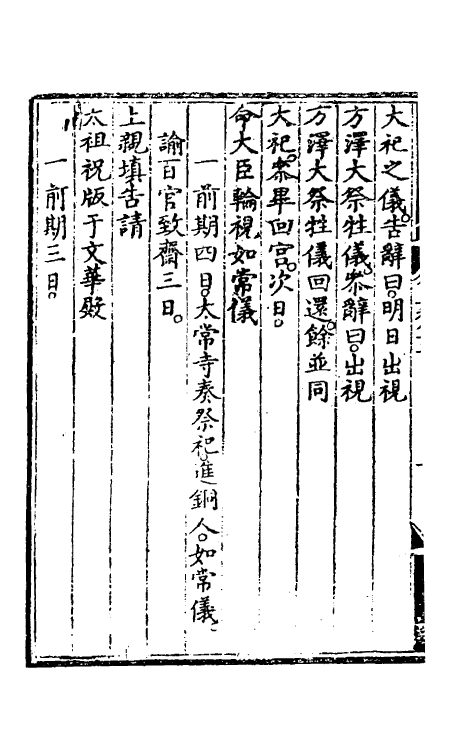 大祀之儀。告辭曰。明日出視
方澤大祭牲儀。叅辭曰。出視
方澤大祭牲儀回還。餘並同
大祀。叅畢回宫。次日。
命大臣輪視如常儀
一前期四日。太常寺奏祭祀。進銅人。如常儀。
諭百官致齋三日。
上親填告請
太祖祝版于文華殿
一前期三日。